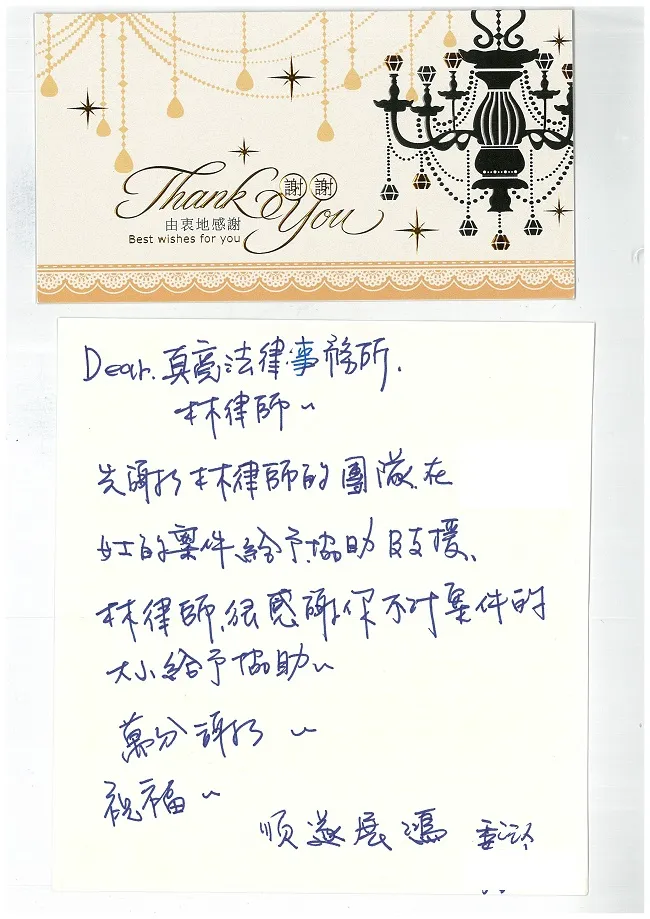 Thank You
謝謝
由衷地感謝
Best wishes for you
Dear. 真亮法律事務所.
林律師~
先謝謝林律師的團隊.在
女士的案件給予.協助及支援、
林律師.很感謝你不对案件的
大小給予協助~
萬分謝謝~
祝福~
順遂展鴻